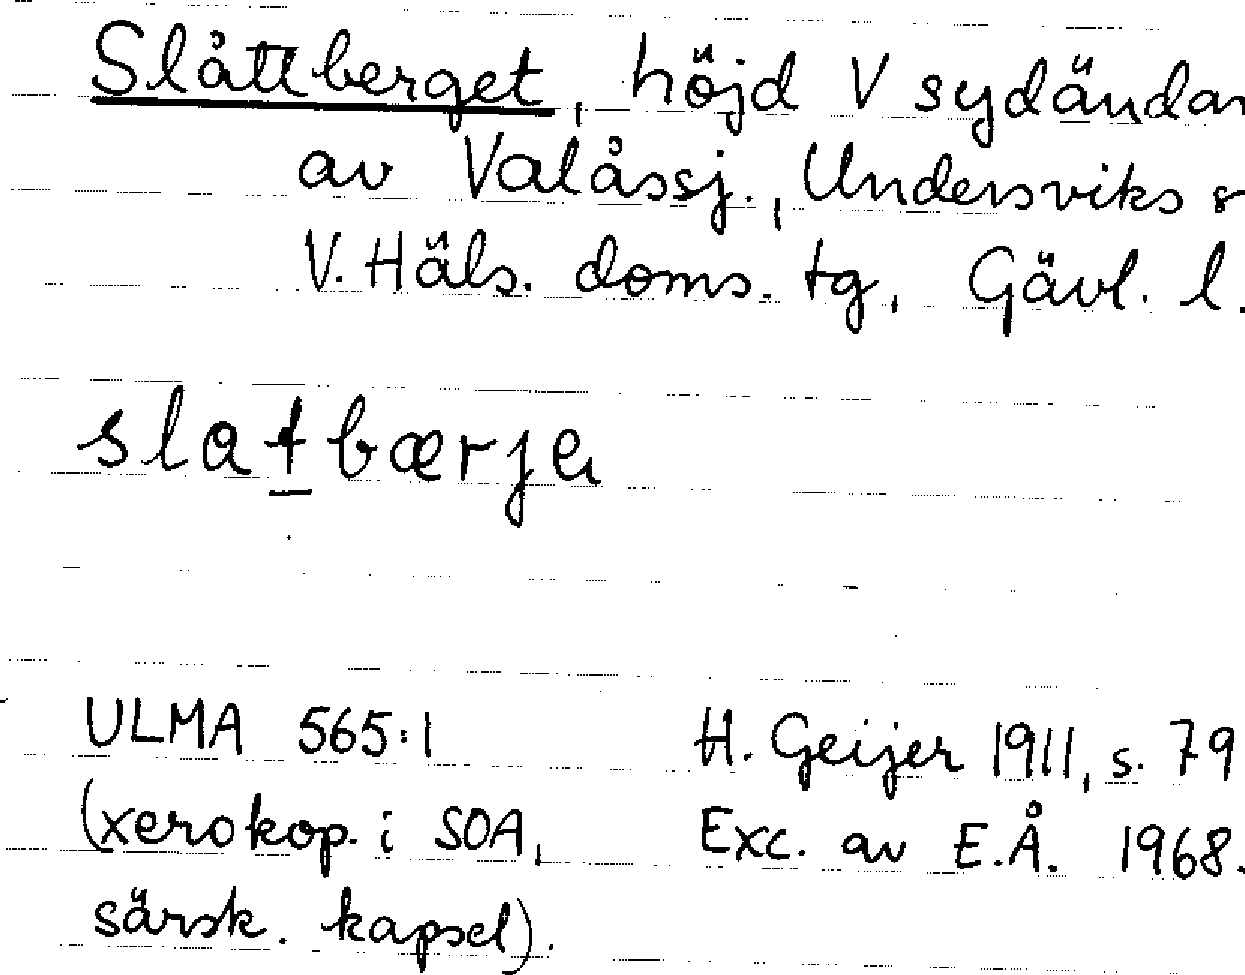 Slåttberget, höjd V sydändan
av Valåssj., Undersviks s
V. Häls. doms. tg, Gävl. l.
slatbærja
ULMA 565:1 H. Geijer 1911, s. 79
(xerokop. i SOA, Exc. av E.Å. 1968.
särsk. kapsel).